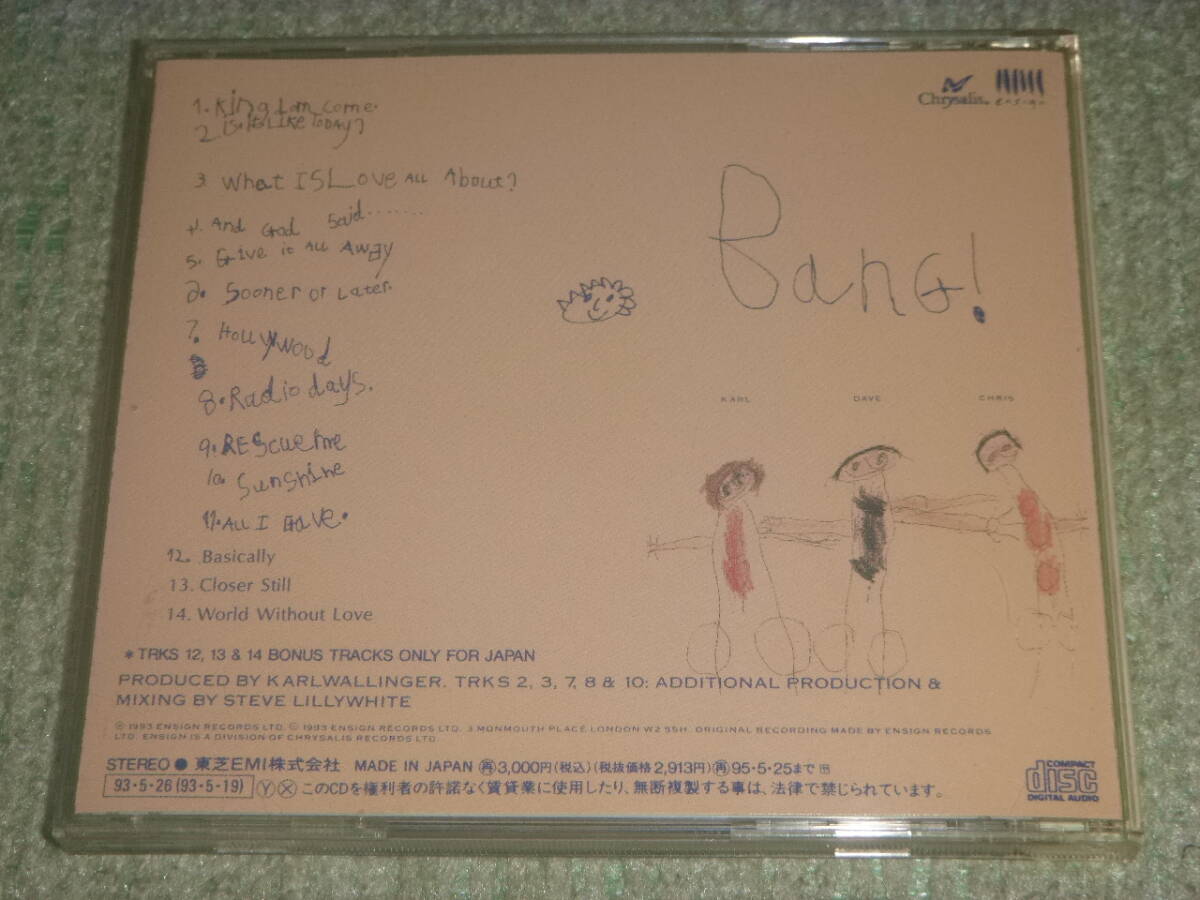 1. Kingdom come.
2 Is It Like Today?
3. What Is Love All About?
4. And God Said.......
5. Give it All Away
6. Sooner or Later.
7. Hollywood
8. Radio days.
9. Rescue me
10. Sunshine
11. All I Gave.
12. Basically
13. Closer Still
14. World Without Love
Chrysalis® ensign
Bang!
KARL DAVE CHRIS
* TRKS 12, 13 & 14 BONUS TRACKS ONLY FOR JAPAN
PRODUCED BY KARLWALLINGER. TRKS 2, 3, 7, 8 & 10: ADDITIONAL PRODUCTION &
MIXING BY STEVE LILLYWHITE
℗ 1993 ENSIGN RECORDS LTD. © 1993 ENSIGN RECORDS LTD. 3 MONMOUTH PLACE LONDON W2 5SH. ORIGINAL RECORDING MADE BY ENSIGN RECORDS
LTD. ENSIGN IS A DIVISION OF CHRYSALIS RECORDS LTD.
STEREO ● 東芝EMI株式会社 MADE IN JAPAN ㊢3,000円(税込)(税抜価格2,913円)㊢95・5・25まで
93・5・26 (93・5・19) Ⓨ Ⓧ このCDを権利者の許諾なく賃貸業に使用したり、無断複製する事は、法律で禁じられています。
COMPACT
disc
DIGITAL AUDIO